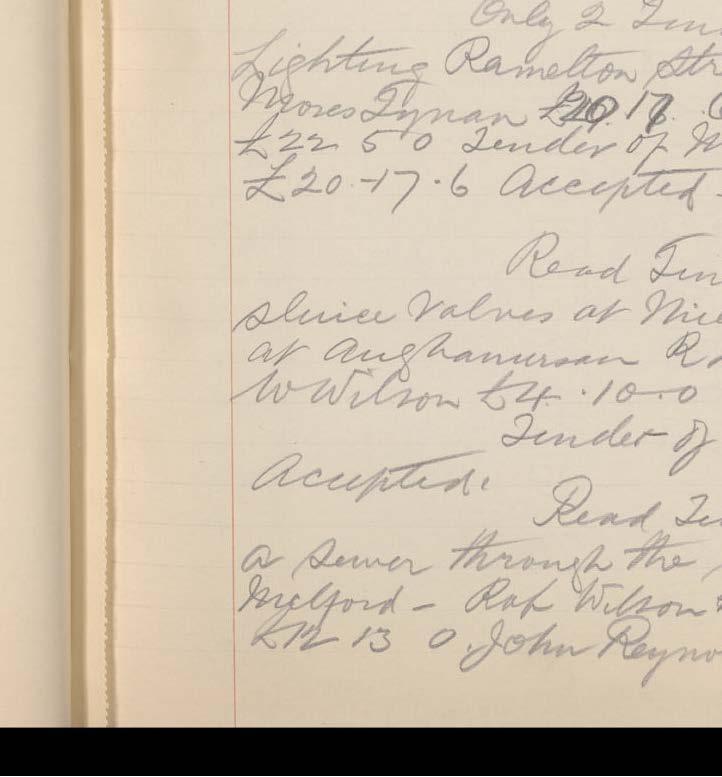 Only 2 Ten
Lighting Ramelton Str
Moses Tynan £20 17
£22 5 0 Tender of M
£20-17-6 Accepted -
Read Ten
Sluice Valves at
at Aughanursan R
W Wilson £4.10.0
Tender of
Accepted.
Read Te
a sewer through the
Milford - Rob Wilson
£12 13 0. John Reyno